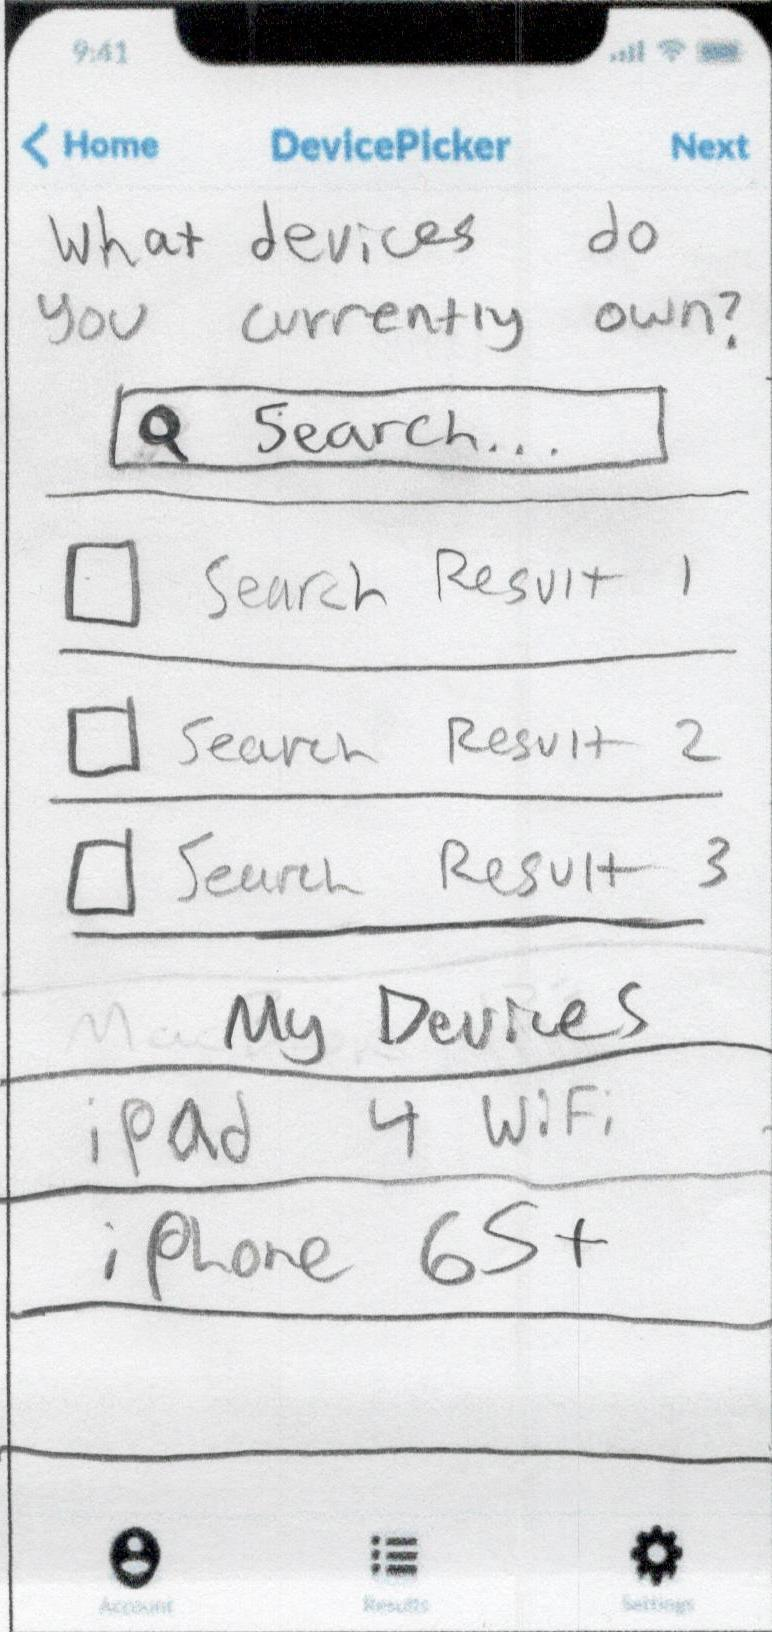 9:41
Home DevicePicker Next
What devices do
you currently own?
Search...
Search Result 1
Search Result 2
Search Result 3
My Devices
ipad 4 WiFi
iPhone 6S+
Account Results Settings